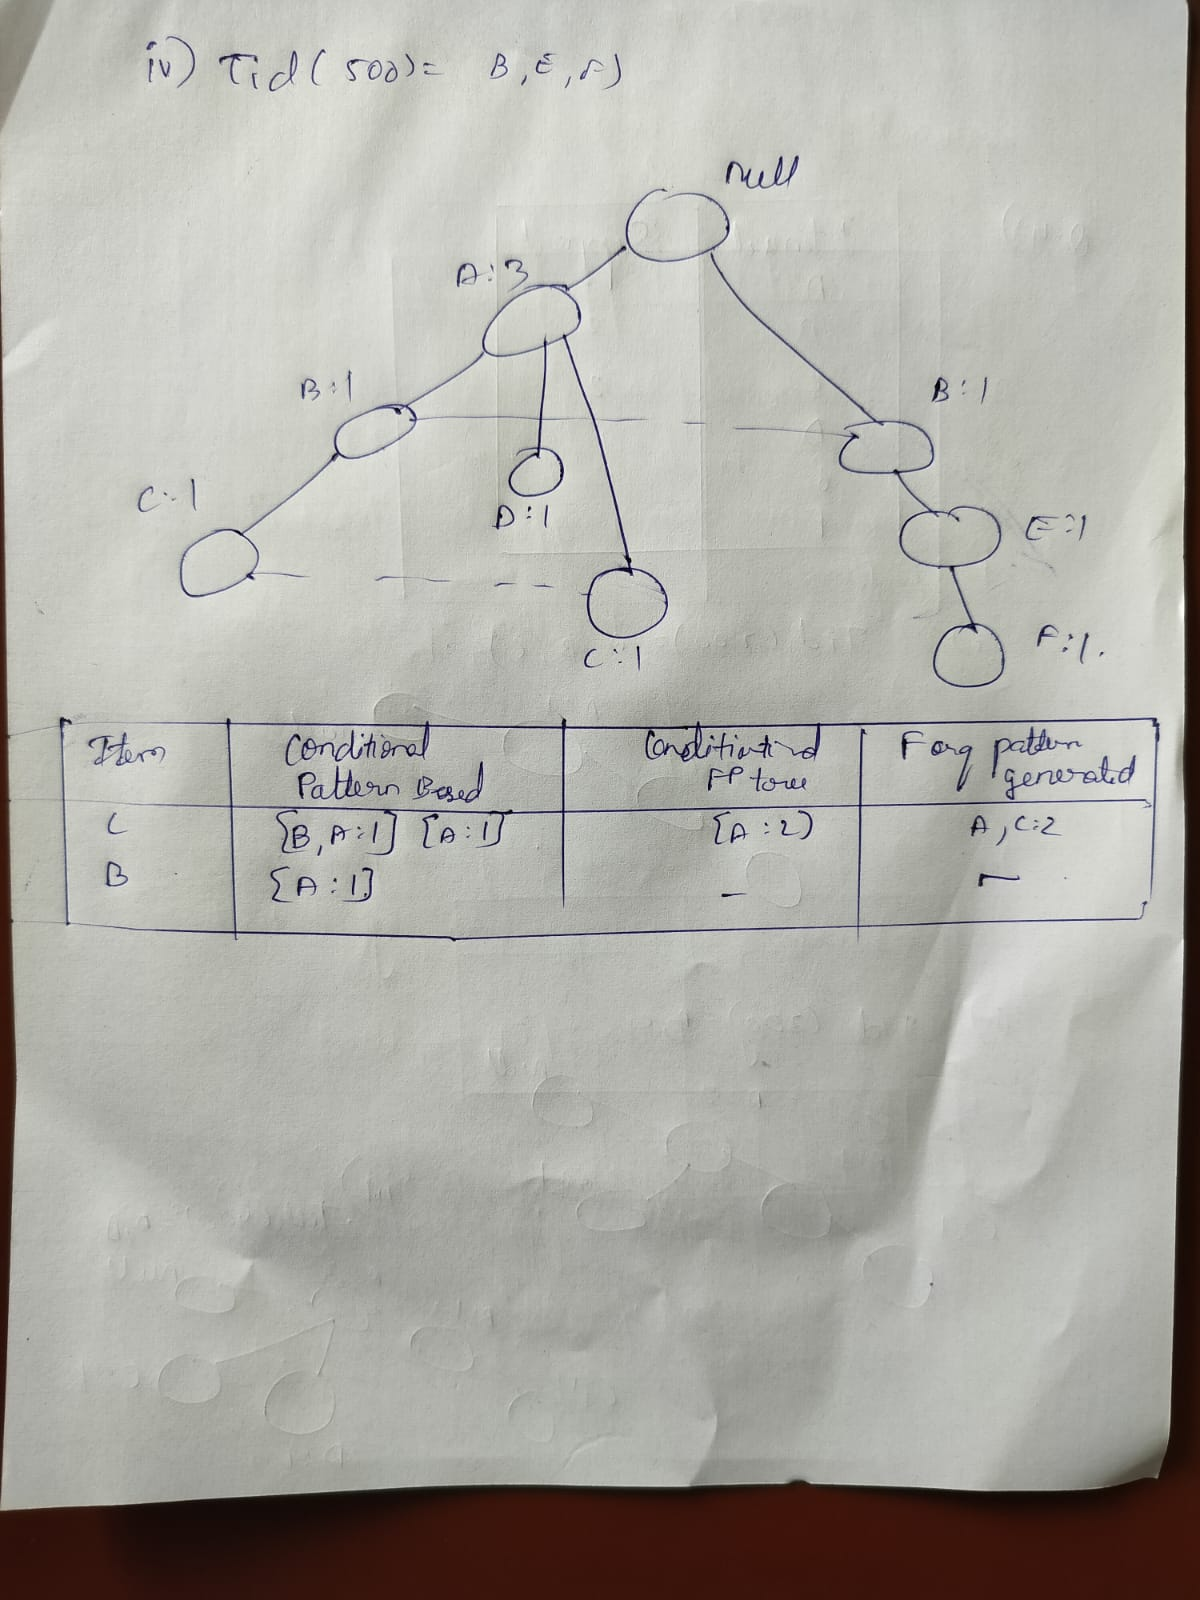 iv) Tid(500)= B, E, F)
Null
A:3
B:1
B:1
C:1
D:1
E:1
C:1
F:1.
Item
Conditional Pattern Based
FP tree
pattern generated
C
{B,A:1} {A:1}
{A:2)
A,C:2
B
{A:1}
–
–